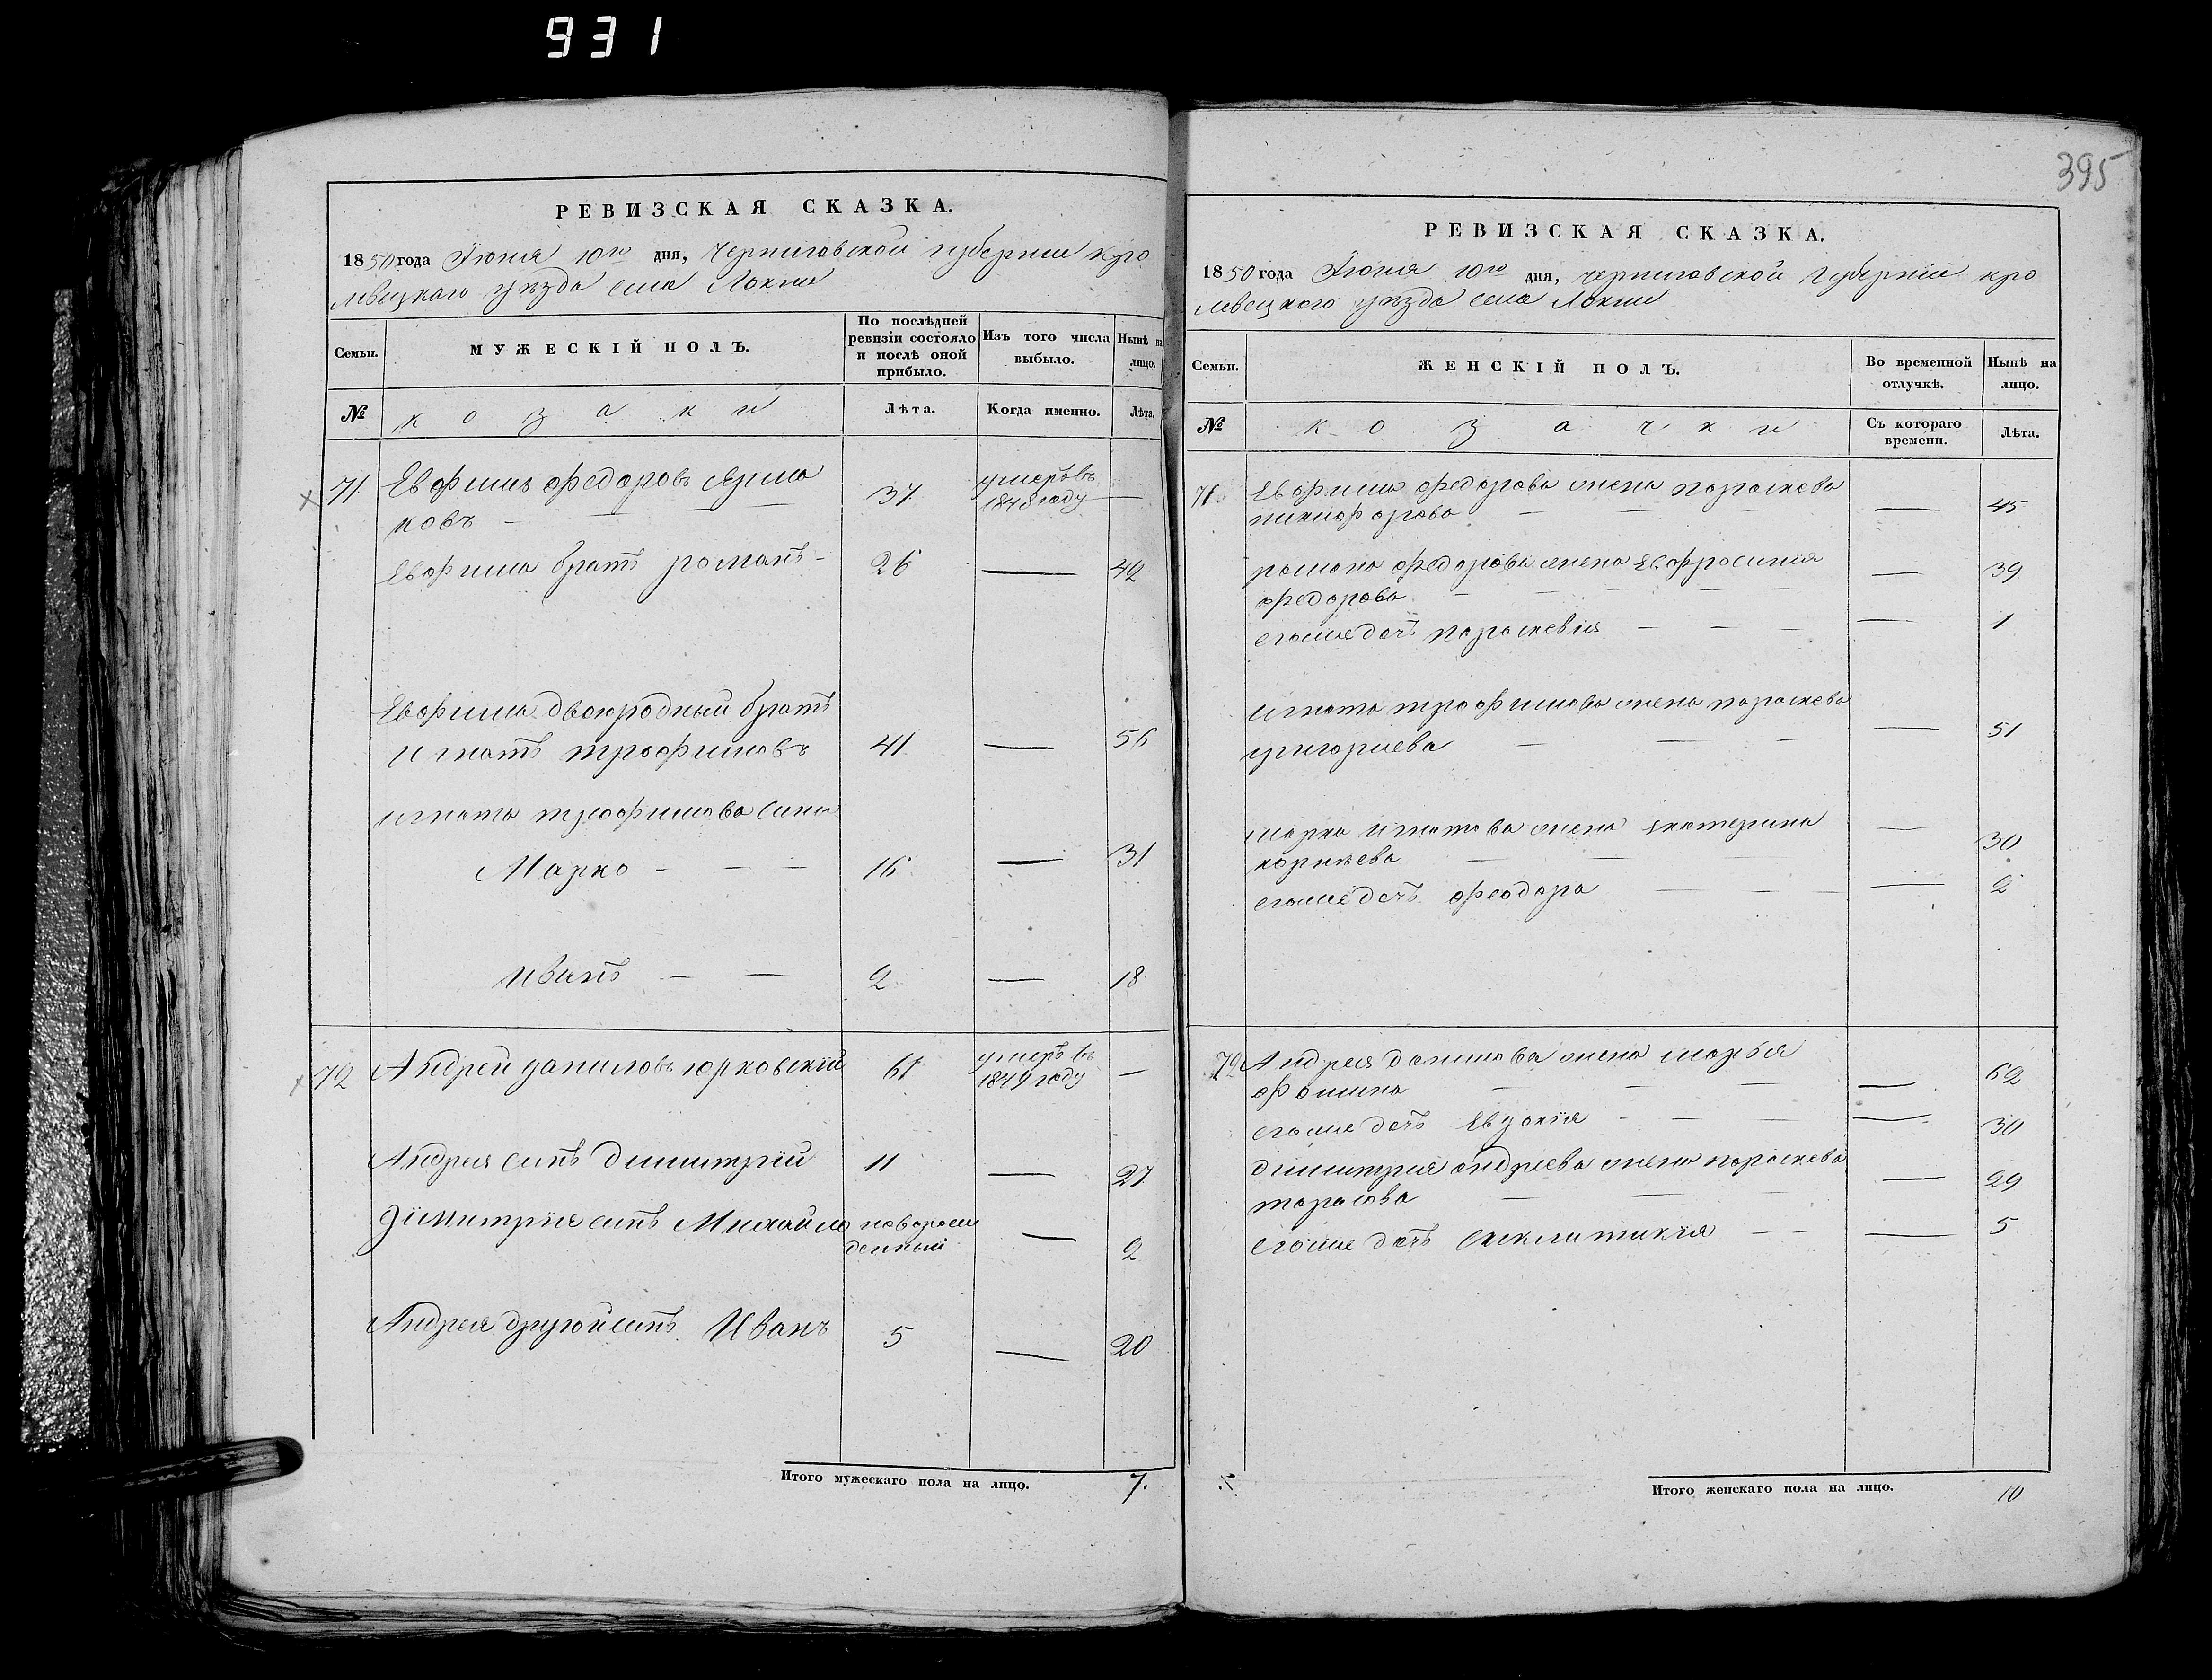 931
395
РЕВИЗСКАЯ СКАЗКА.
1850 года Июня 10го дня, Черниговской губернии Кро
левецкаго уѣзда села Локни
Семьи.
МУЖЕСКІЙ ПОЛЪ.
По послѣдней ревизіи состояло и послѣ оной прибыло.
Изъ того числа выбыло.
Нынѣ на лицо.
№
козаки
Лѣта.
Когда именно.
Лѣта.
71. Евфимъ Федоровъ 37. умеръ въ —
ковъ — — — — 1848 году
Евфима братъ романъ - 26 — 42
Евфима двоюродный братъ
Игнатъ трофимовъ 41 — 56
игната трофимова сини
Марко - — — 16 — 31
Иванъ — — 2 — 18
72 Андрей даниловъ юрковскій 61 умеръ въ —
1849 году
Андрея синъ димитрій 11 — 27
Димитрія синъ Михайло новорож
денный — 2
Андрея другой синъ Иванъ 5 — 20
Итого мужескаго пола на лицо. 7.
РЕВИЗСКАЯ СКАЗКА.
1850 года Июня 10го дня, черниговской Губерніи кро
левецкого уѣзда села Локни
Семьи.
ЖЕНСКІЙ ПОЛЪ.
Во временной отлучкѣ.
Нынѣ на лицо.
№
козачки
Съ котораго времени.
Лѣта.
71 Евфима федорова жена параскева
никифорова — — — — 45
романа федорова жена Евфросинія — 39
федорова — — — — —
егоже дочъ параскевія — — — — 1
игната трофимова жена параскева
григориева — — — — 51
марка игнатова жена Екатерина —
корнѣева — — 30
егоже дочъ феодора — — — — 2
72 Андрея данилова жена марья
фомина — — — — 62
егоже дочъ Евдокія - — — — 30
димитрия андреева жена параскева
тарасова — — — — 29
егоже дочъ синклитикія — — — 5
Итого женскаго пола на лицо. 10